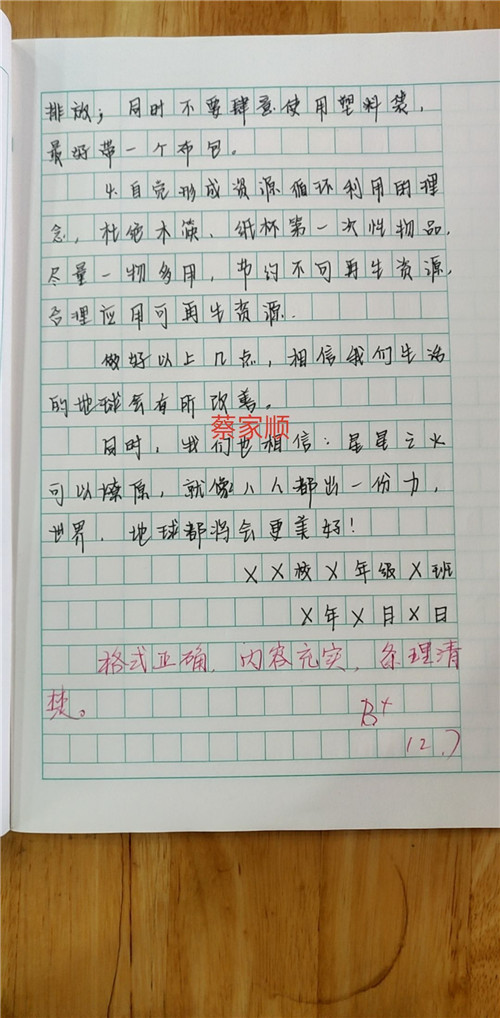 排放；同时不要肆意使用塑料袋，
最好带一个布包。
4.自觉形成资源循环利用的理
念，杜绝木筷、纸杯第一次性物品，
尽量一物多用，节约不可再生资源，
合理应用可再生资源.
做好以上几点，相信我们生活
的地球会有所改善。
蔡家顺
同时，我们也相信：星星之火
可以燎原，就像人人都出一份力，
世界、地球都将会更美好！
XX校X年级X班
X年X月X日
格式正确，内容充实，条理清
楚。
B+
12.7